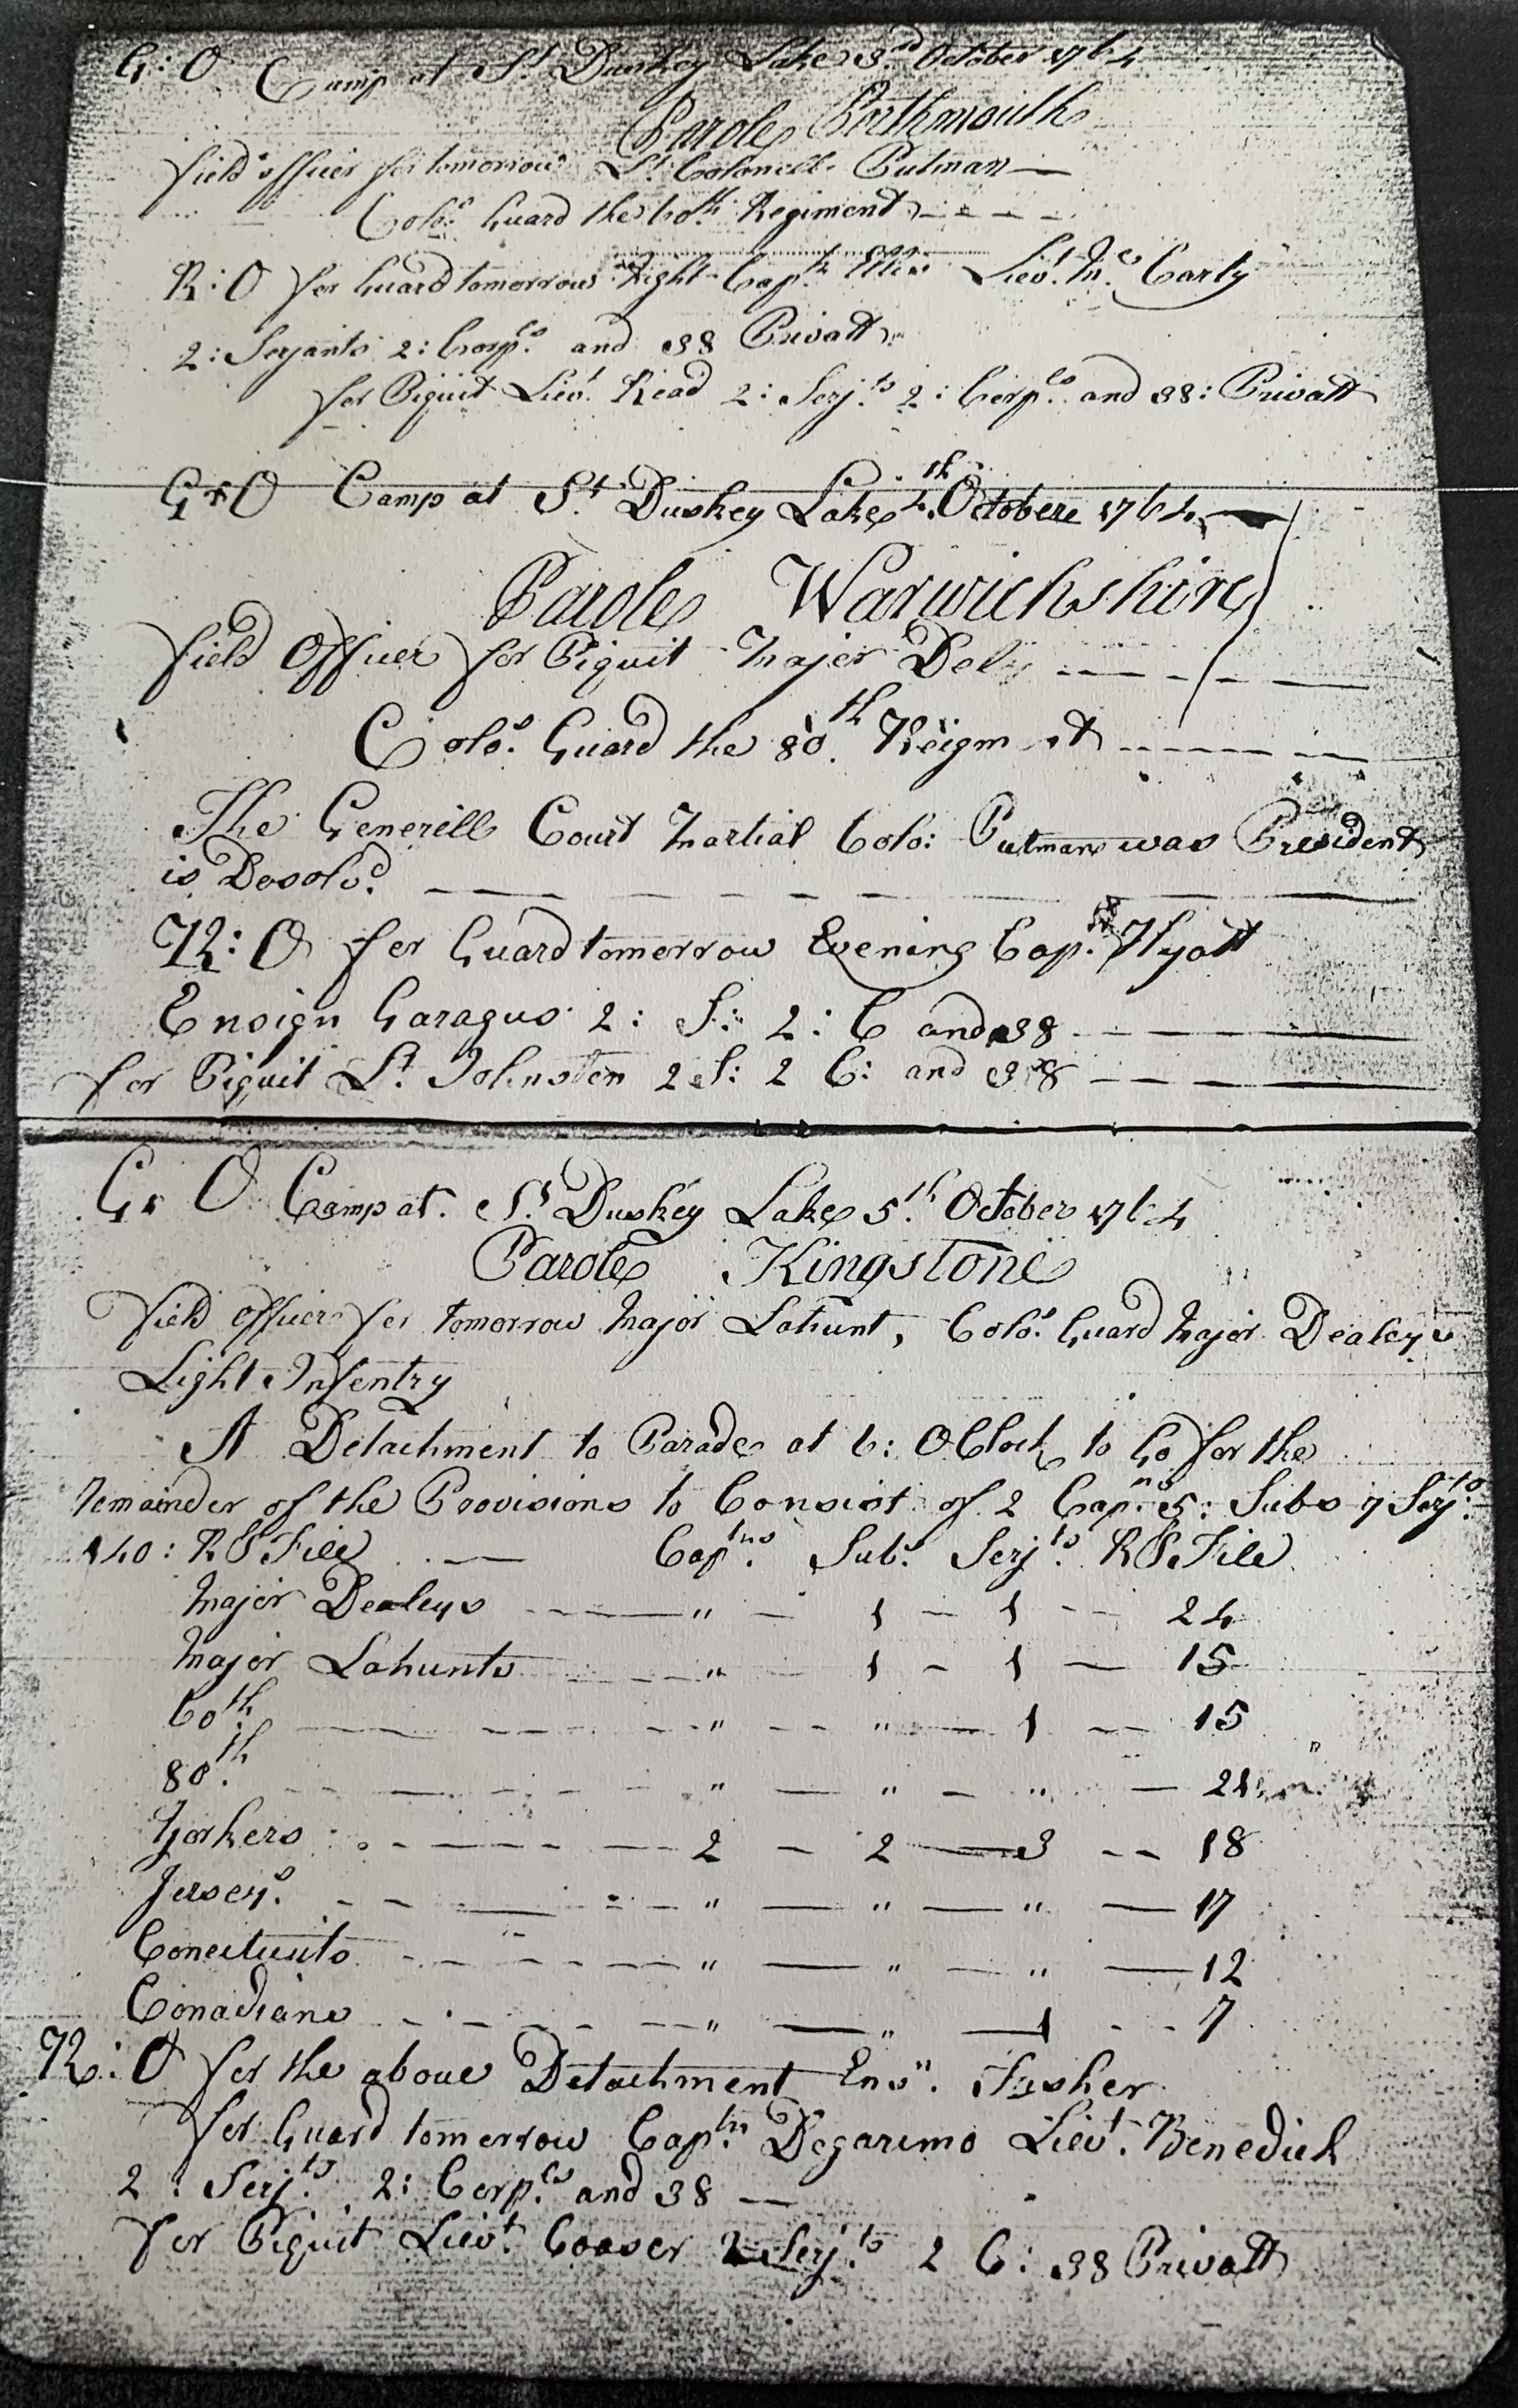 G: O Camp at St Duskey Lake 3rd October 1764
Parole Porthmouth
field officer for tomorrow Lt. Colonell Putman —
Colos. Guard the 60th Regiment
R: O for Guard tomorrow Night Capt. Lievt. Mc. Carty
2: Serjants 2: Corpls. and 38 Privatt
for Piquit Lievt. Read 2: Serjts. 2: Corpls. and 38: Privatt
G: O Camp at St. Duskey Lake 4th. Octobere 1764
Parole Warwichshire
Field Officer for Piquit Major Dely
Colos. Guard the 80th. Reigment
The Generell Court Martial Colo: Putman was President
is Desolvd.
R: O for Guard tomorrow Evening Capt. Hyatt
Ensign Garagus 2: S: 2: C and 38
for Piquit Lt. Johnsten 2 S: 2 C: and 38
G: O Camp at St. Duskey Lake 5th. October 1764
Parole Kingstone
field officer for tomorrow Major Lahunt, Colos. Guard Major Dealeys
Light Infentry
A Detachment to Parade at 6: OClock to Go for the
remainder of the Provisions to Consist of 2 Capns 5: Subs 7 Serjts.
140: R & File Captns. Subs. Serjts. R & File
Major Dealeys " 1 1 24
Major Lahunts " 1 1 15
60th " " 1 15
80th. " " "
Yorkers 2 2 3 18
Jerseys. " " " 17
Conectuits " " " 12
Conadians " " 1 7
R: O for the above Detachment Ensn. Fusher
for Guard tomorrow Captn. Degarimo Lievt. Benedick
2: Serjts. 2: Corpls. and 38 —
for Piquit Lievt. Cooser 2 Serjts. 2 C: 38 Privatt